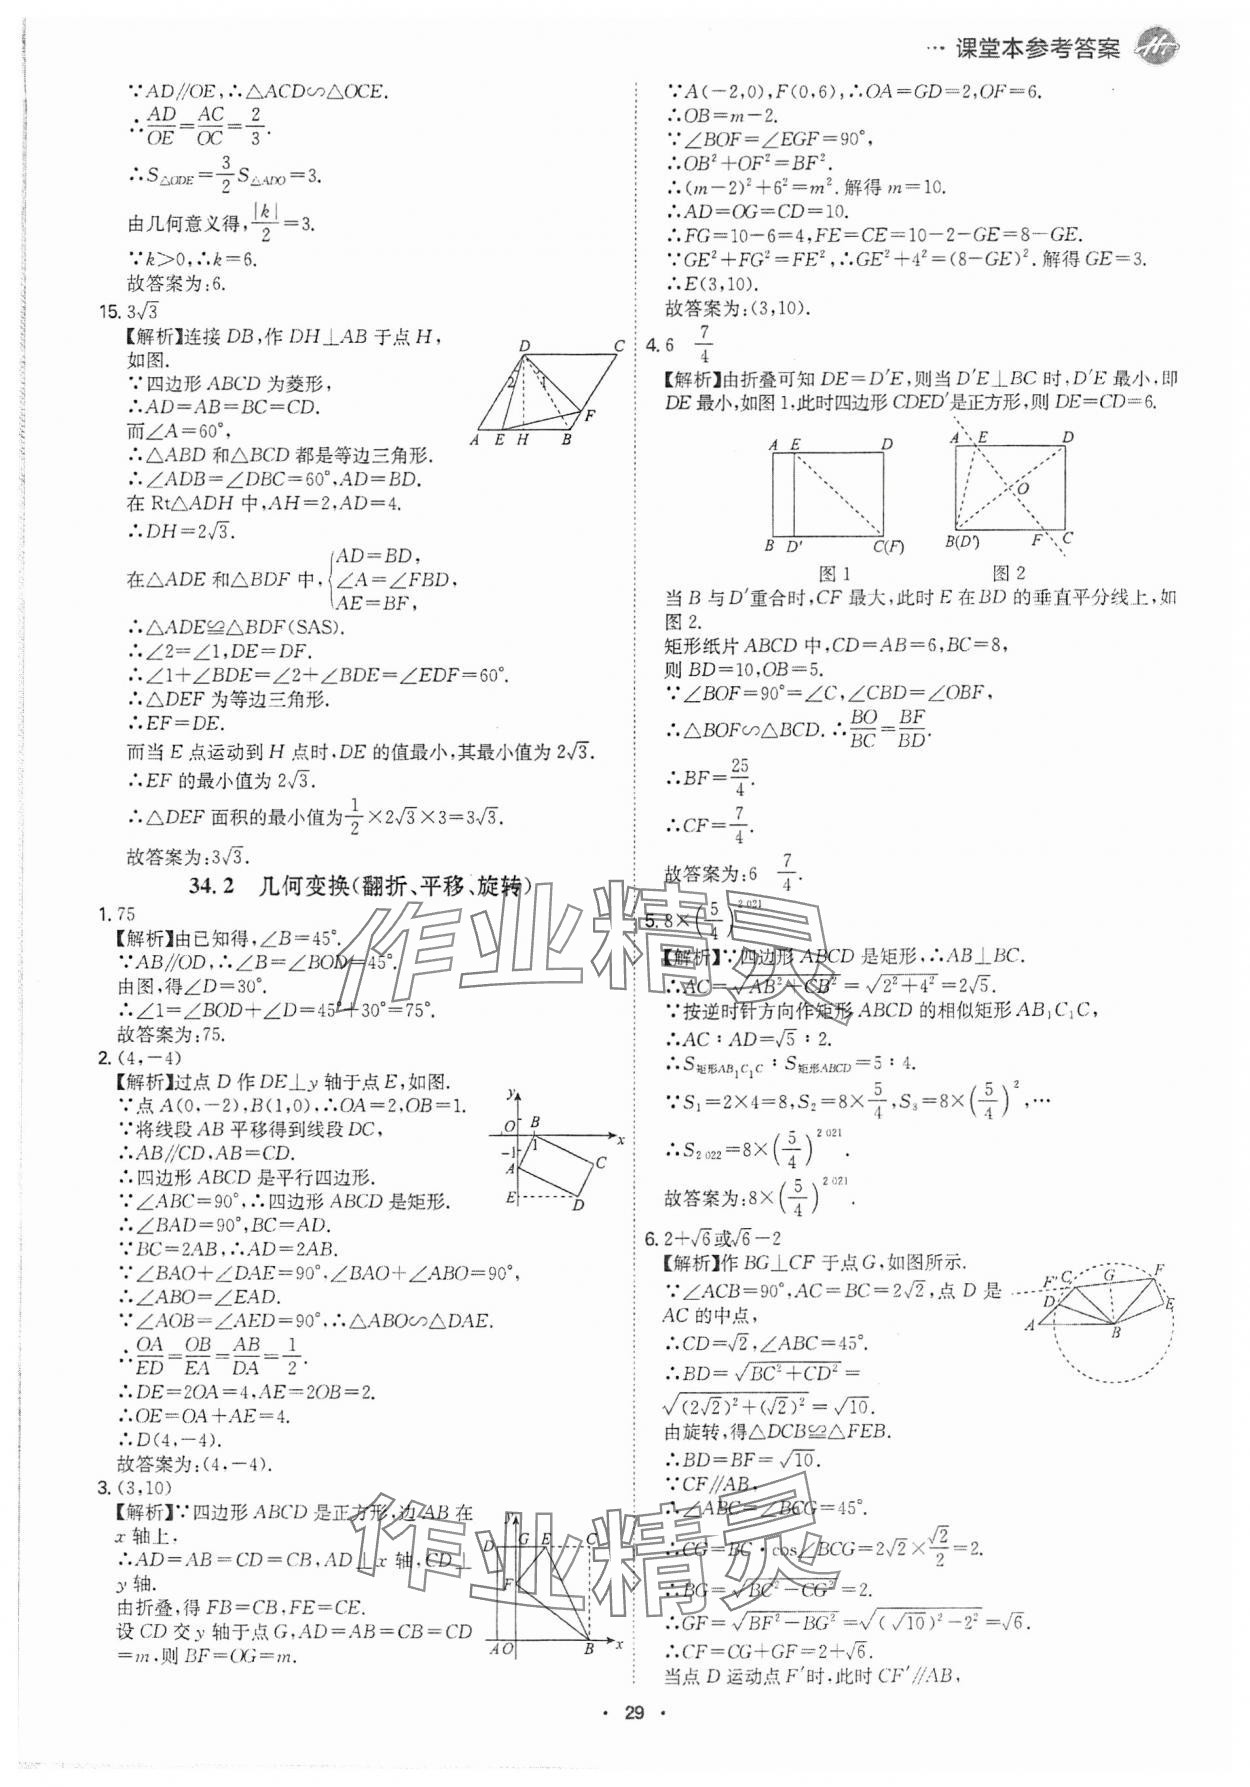 ··· 课堂本参考答案
∵AD//OE,∴△ACD∽△OCE.
∴AD/OE=AC/OC=2/3.
∴S△ODE=3/2 S△ADO=3.
由几何意义得,|k|/2=3.
∵k>0,∴k=6.
故答案为:6.
15. 3√3
【解析】连接 DB,作 DH⊥AB 于点 H,
如图.
∵四边形 ABCD 为菱形,
∴AD=AB=BC=CD.
而∠A=60°,
∴△ABD 和△BCD 都是等边三角形.
∴∠ADB=∠DBC=60°,AD=BD.
在 Rt△ADH 中,AH=2,AD=4.
∴DH=2√3.
在△ADE 和△BDF 中,{AD=BD,
∠A=∠FBD,
AE=BF,
∴△ADE≌△BDF(SAS).
∴∠2=∠1,DE=DF.
∴∠1+∠BDE=∠2+∠BDE=∠EDF=60°.
∴△DEF 为等边三角形.
∴EF=DE.
而当 E 点运动到 H 点时,DE 的值最小,其最小值为 2√3.
∴EF 的最小值为 2√3.
∴△DEF 面积的最小值为1/2×2√3×3=3√3.
故答案为:3√3.
D C 2 1 F A E H B
34.2 几何变换(翻折、平移、旋转)
1. 75
【解析】由已知得,∠B=45°.
∵AB//OD,∴∠B=∠BOD=45°.
由图,得∠D=30°.
∴∠1=∠BOD+∠D=45°+30°=75°.
故答案为:75.
2. (4,-4)
【解析】过点 D 作 DE⊥y 轴于点 E,如图.
∵点 A(0,-2),B(1,0),∴OA=2,OB=1.
∵将线段 AB 平移得到线段 DC,
∴AB//CD,AB=CD.
∴四边形 ABCD 是平行四边形.
∵∠ABC=90°,∴四边形 ABCD 是矩形.
∴∠BAD=90°,BC=AD.
∵BC=2AB,∴AD=2AB.
∵∠BAO+∠DAE=90°,∠BAO+∠ABO=90°,
∴∠ABO=∠EAD.
∵∠AOB=∠AED=90°,∴△ABO∽△DAE.
∴OA/ED=OB/EA=AB/DA=1/2.
∴DE=2OA=4,AE=2OB=2.
∴OE=OA+AE=4.
∴D(4,-4).
故答案为:(4,-4).
y O B 1 x -1 A C E D
3. (3,10)
【解析】∵四边形 ABCD 是正方形,边 AB 在
x 轴上,
∴AD=AB=CD=CB,AD⊥x 轴,CD⊥
y 轴.
由折叠,得 FB=CB,FE=CE.
设 CD 交 y 轴于点 G,AD=AB=CB=CD
=m,则 BF=OG=m.
D G E C F A O B x
∵A(-2,0),F(0,6),∴OA=GD=2,OF=6.
∴OB=m-2.
∵∠BOF=∠EGF=90°,
∴OB²+OF²=BF².
∴(m-2)²+6²=m². 解得 m=10.
∴AD=OG=CD=10.
∴FG=10-6=4,FE=CE=10-2-GE=8-GE.
∵GE²+FG²=FE²,∴GE²+4²=(8-GE)². 解得 GE=3.
∴E(3,10).
故答案为:(3,10).
4. 6 7/4
【解析】由折叠可知 DE=D′E,则当 D′E⊥BC 时,D′E 最小,即
DE 最小,如图 1,此时四边形 CDED′是正方形,则 DE=CD=6.
A E D B D′ C(F)
图 1
A E D O B(D′) F C
图 2
当 B 与 D′重合时,CF 最大,此时 E 在 BD 的垂直平分线上,如
图 2.
矩形纸片 ABCD 中,CD=AB=6,BC=8,
则 BD=10,OB=5.
∵∠BOF=90°=∠C,∠CBD=∠OBF,
∴△BOF∽△BCD.∴BO/BC=BF/BD.
∴BF=25/4.
∴CF=7/4.
故答案为:6 7/4
5. 8×(5/4)^2 021
【解析】∵四边形 ABCD 是矩形,∴AB⊥BC.
∴AC=√(AB²+CB²)=√(2²+4²)=2√5.
∵按逆时针方向作矩形 ABCD 的相似矩形 AB₁C₁C,
∴AC∶AD=√5∶2.
∴S矩形AB₁C₁C∶S矩形ABCD=5∶4.
∵S₁=2×4=8,S₂=8×5/4,S₃=8×(5/4)²,…
∴S₂ ₀₂₂=8×(5/4)^2 021.
故答案为:8×(5/4)^2 021
6. 2+√6或√6-2
【解析】作 BG⊥CF 于点 G,如图所示.
∵∠ACB=90°,AC=BC=2√2,点 D 是
AC 的中点,
∴CD=√2,∠ABC=45°.
∴BD=√(BC²+CD²)=
√((2√2)²+(√2)²)=√10.
由旋转,得△DCB≌△FEB.
∴BD=BF=√10.
∵CF//AB,
∴∠ABC=∠BCG=45°.
∴CG=BC·cos∠BCG=2√2×√2/2=2.
∴BG=√(BC²-CG²)=2.
∴GF=√(BF²-BG²)=√((√10)²-2²)=√6.
∴CF=CG+GF=2+√6.
当点 D 运动点 F′时,此时 CF′//AB,
F′ C G F D E A B
作业精灵
作业精灵
· 29 ·